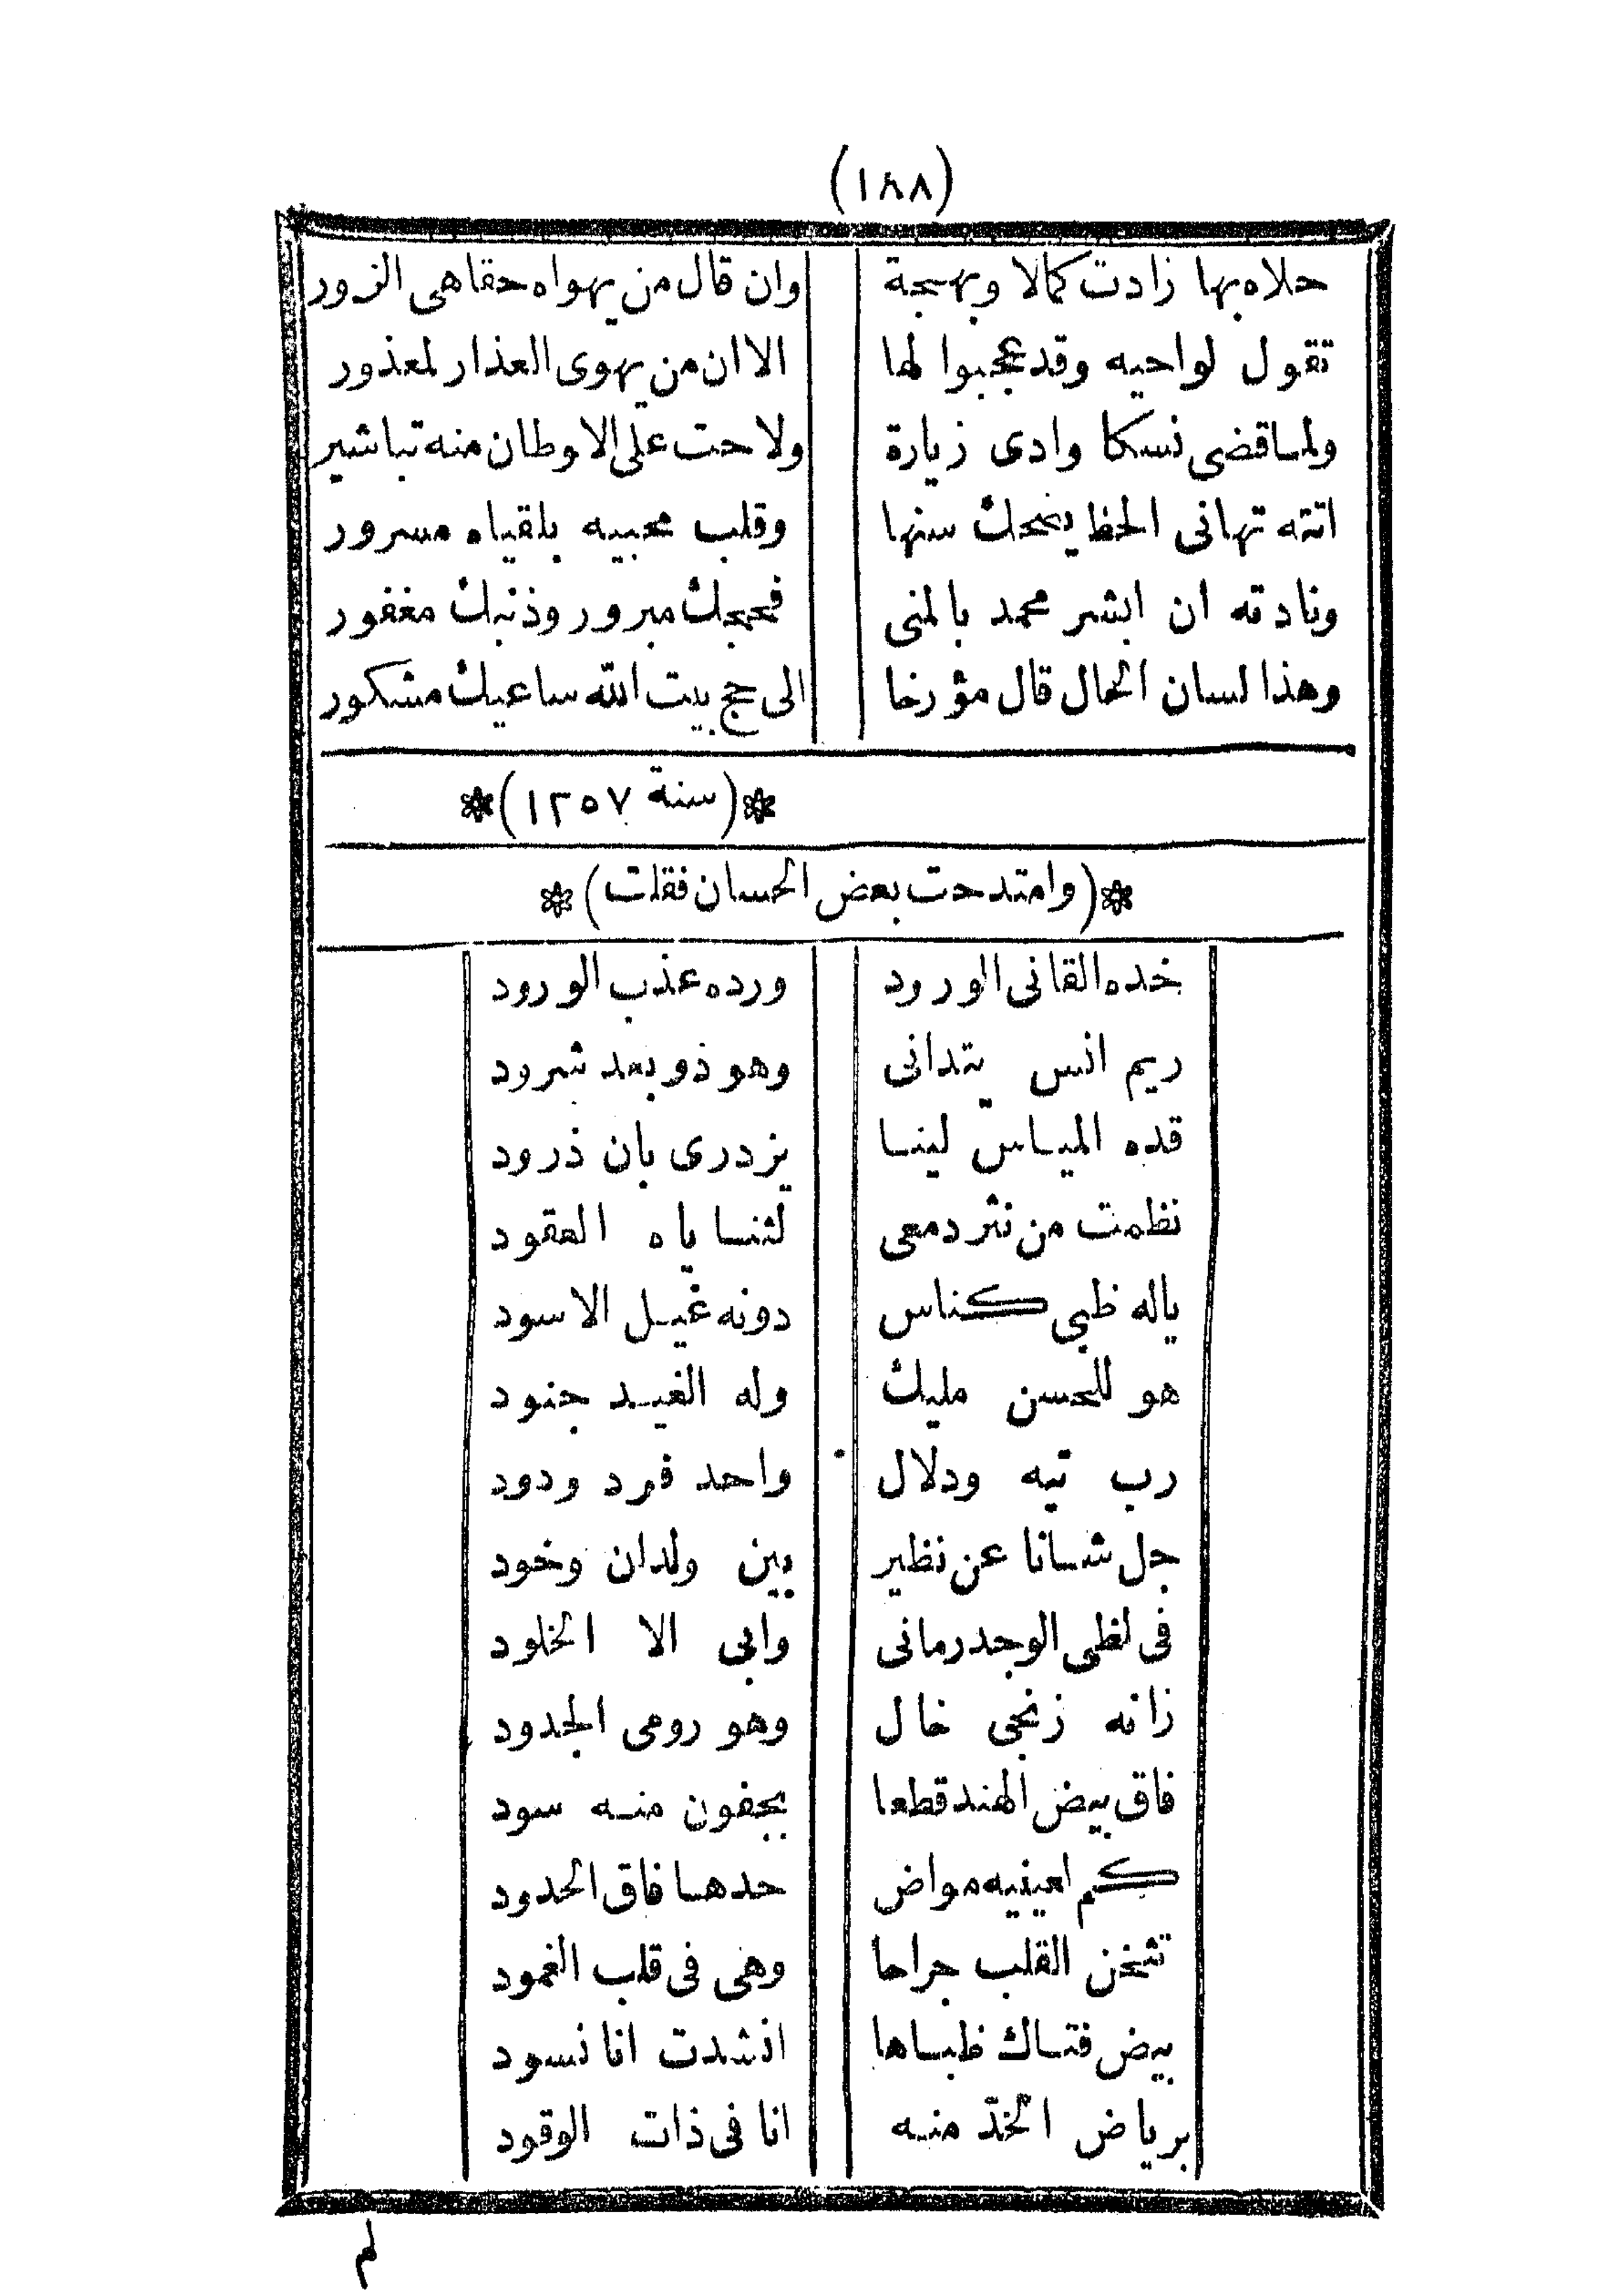 (١٨٨)
حلاه بها زادت كمالا وبهجة وان قال من يهواه حقاهى الزور
تقول لواحيه وقد عجبوا لها الاان من يهوى العذار لمعذور
ولما قضى نسكا وادى زيارة ولاحت على الاوطان منه تباشير
اتته تهانى الحظ يضحك سنها وقلب محبيه بلقياه مسرور
ونادته ان ابشر محمد بالمنى فحجك مبرور وذنبك مغفور
وهذا لسان الحال قال مؤرخا الى حج بيت الله ساعيك مشكور
*(سنة ١٢٥٧)*
*(وامتدحت بعض الحسان فقلت)*
خده القانى الورود ورده عذب الورود
ريم انس يتدانى وهو ذو بعد شرود
قده المياس لينا يزدرى بان ذرود
نظمت من نثر دمعى لثناياه العقود
ياله ظبى كناس دونه غيل الاسود
هو للحسن مليك وله الغيد جنود
رب تيه ودلال واحد فرد ودود
جل شانا عن نظير بين ولدان وخود
فى لظى الوجد رمانى وابى الا الخلود
زانه زنجى خال وهو رومى الجدود
فاق بيض الهند قطعا بجفون منه سود
كم لعينيه مواض حدها فاق الحدود
تثخن القلب جراحا وهى فى قلب الغمود
بيض فتاك ظباها انشدت انا نسود
برياض الخدّ منه انا فى ذات الوقود
لم